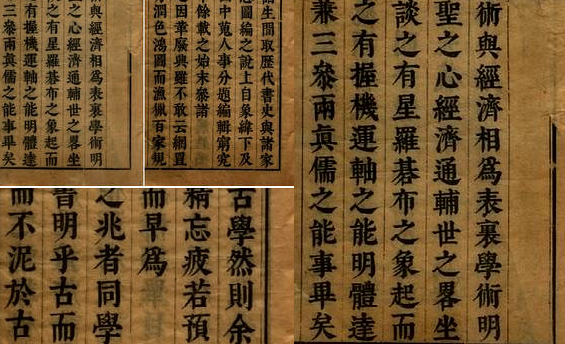 與經濟相為表裏學術明
之心經濟通輔世之畧坐
之有星羅碁布之象起而
有握機運軸之能明體達
三叅兩真儒之能事畢矣
生間取歷代書史與諸家
圖編之說上自象緯下及
中蒐人事分題編輯窮究
餘載之始末叅諸
因葦厥典雖不敢云網罟
潤色鴻圖而漁獵百家
古學然則余
精忘疲若預
而早為
之兆者同學
皆明乎古而
而不泥於古
術與經濟相為表裏學術明
聖之心經濟通輔世之畧坐
談之有星羅碁布之象起而
之有握機運軸之能明體達
兼三叅兩真儒之能事畢矣